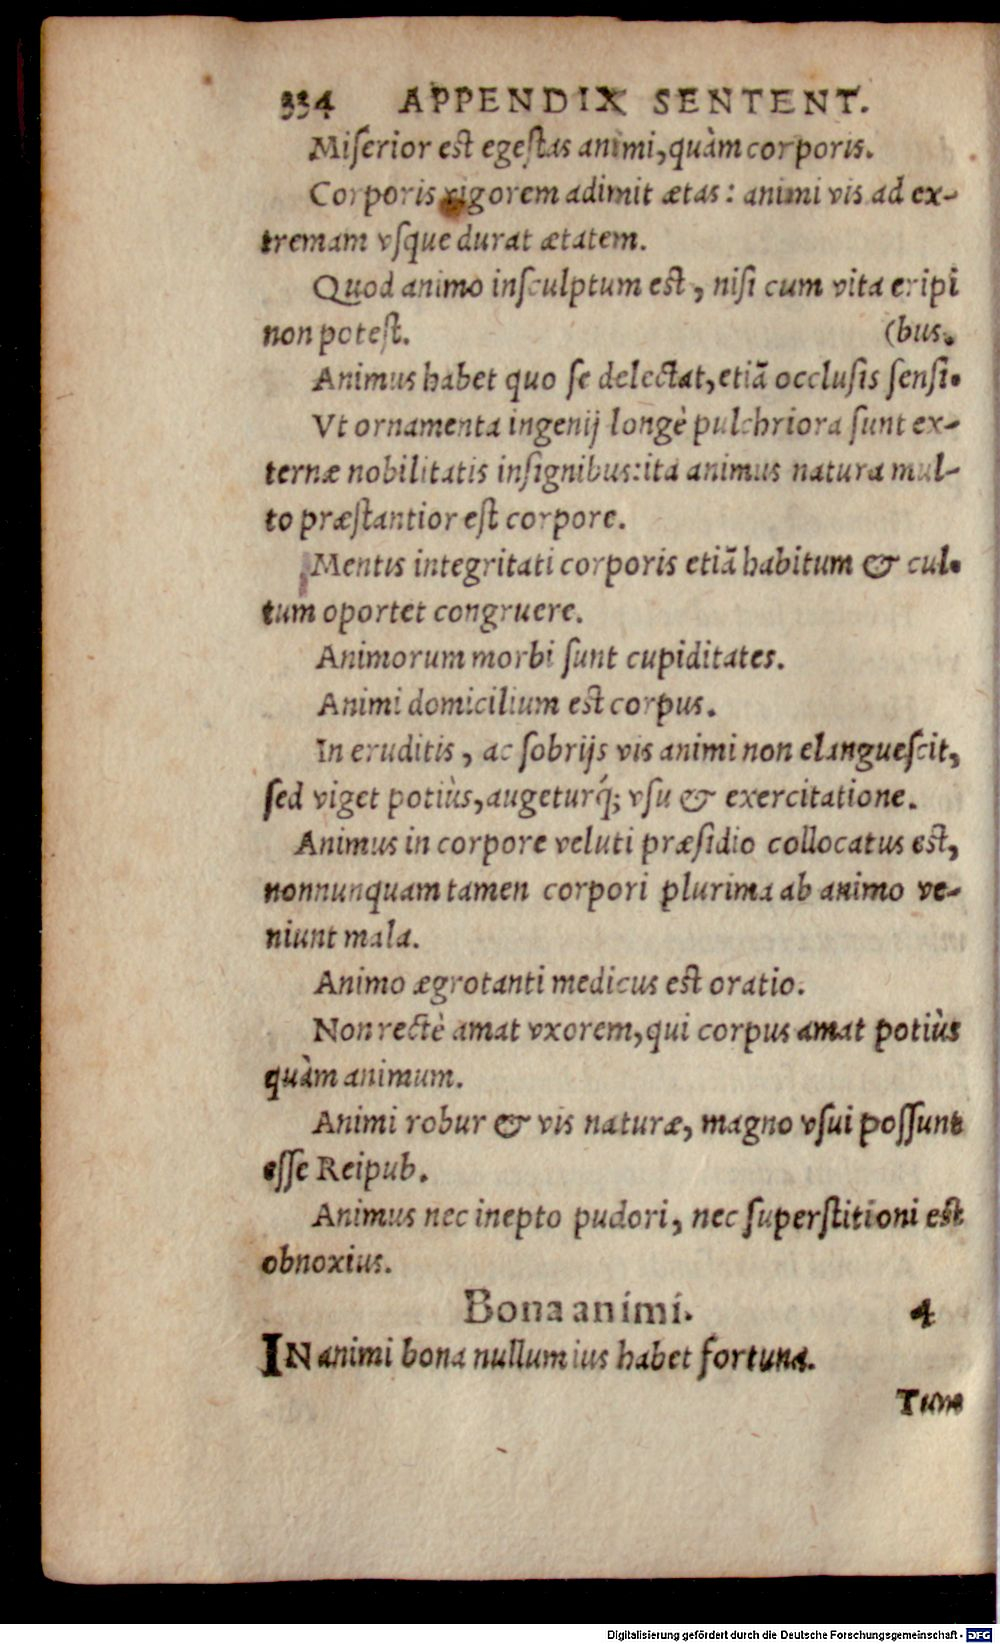 334 APPENDIX SENTENT.
Miſerior est egeſtas animi, quàm corporis.
Corporis rigorem adimit ætas: animi vis ad ex-
tremam vſque durat ætatem.
Quod animo inſculptum est, niſi cum vita eripi
non poteſt. (bus.
Animus habet quo ſe delectat, etiã occluſis ſenſi-
Vt ornamenta ingenij longè pulchriora ſunt ex-
ternæ nobilitatis inſignibus: ita animus natura mul-
to præſtantior eſt corpore.
Mentis integritati corporis etiã habitum & cul-
tum oportet congruere.
Animorum morbi ſunt cupiditates.
Animi domicilium est corpus.
In eruditis, ac ſobrijs vis animi non elangueſcit,
ſed viget potiùs, augeturq́; vſu & exercitatione.
Animus in corpore veluti præſidio collocatus est,
nonnunquam tamen corpori plurima ab animo ve-
niunt mala.
Animo ægrotanti medicus est oratio.
Non rectè amat vxorem, qui corpus amat potiùs
quàm animum.
Animi robur & vis naturæ, magno vſui poſſunt
eſſe Reipub.
Animus nec inepto pudori, nec ſuperſtitioni est
obnoxius.
Bona animi. 4
IN animi bona nullum ius habet fortuna.
Tum
Digitalisierung gefördert durch die Deutsche Forschungsgemeinschaft - DFG